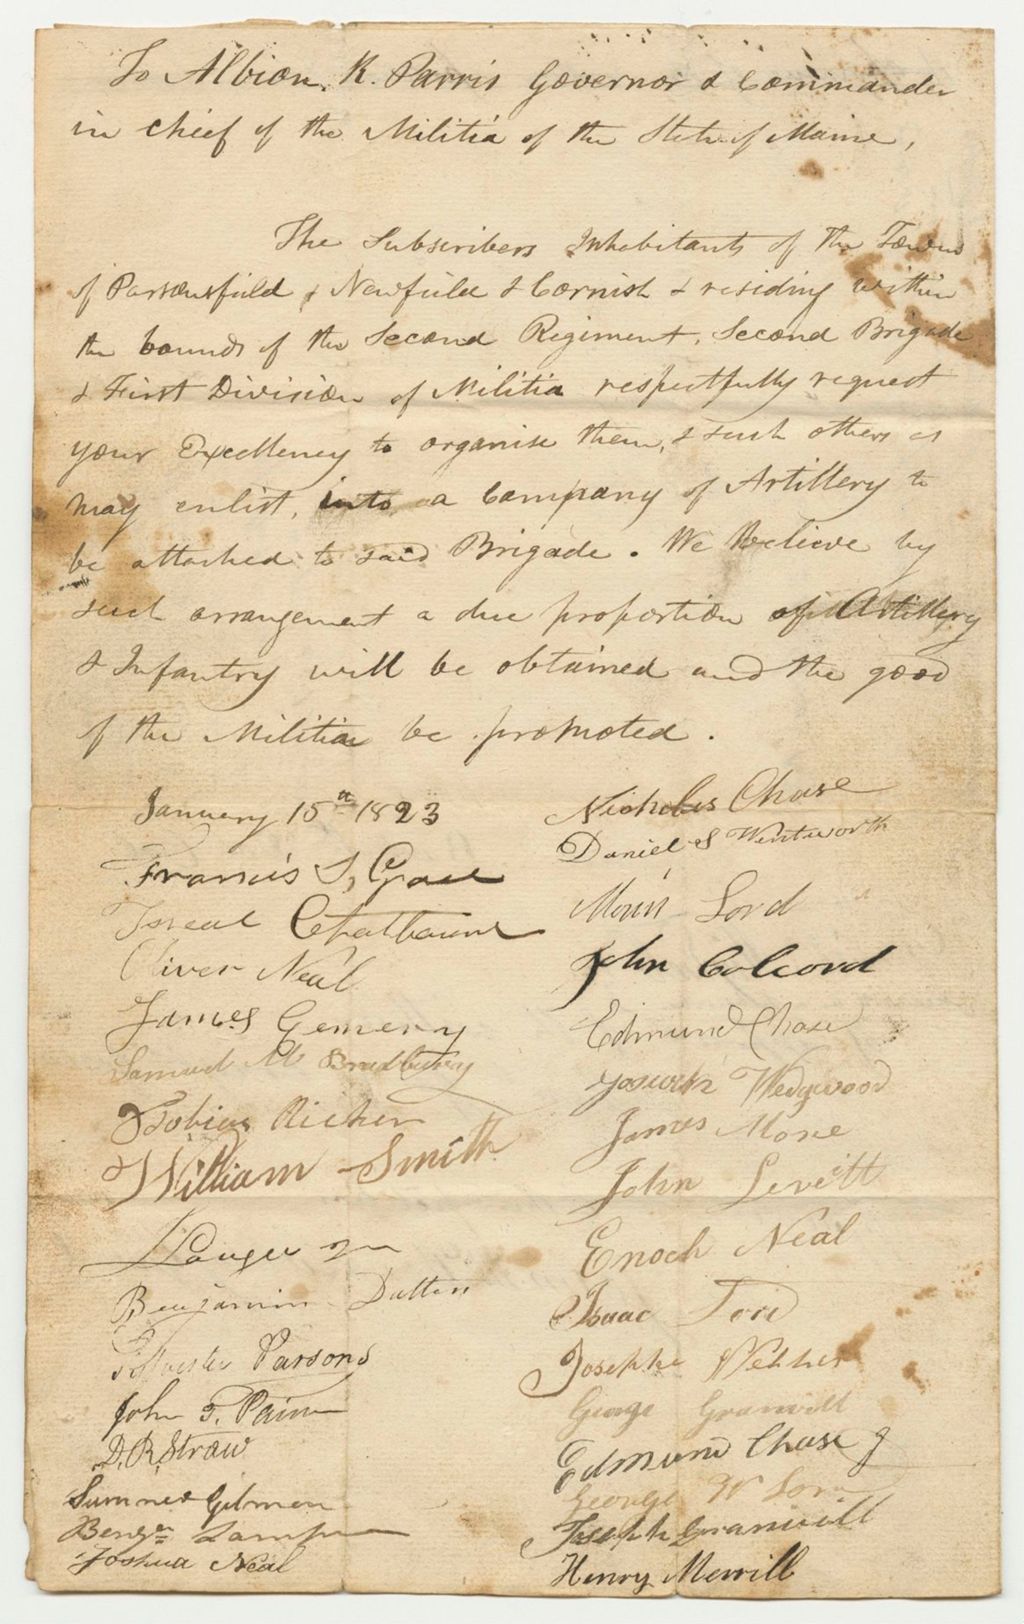 To Albion K. Parris Governor & Commander
in chief of the Militia of the State of Maine,
The Subscribers Inhabitants of the Towns
of Parsonsfield & Newfield & Cornish & residing within
the bounds of the Second Regiment, Second Brigade
& First Division of Militia respectfully request
your Excellency to organise them, & such others as
may enlist, into a Company of Artillery to
be attached to said Brigade. We believe by
such arrangement a due proportion of Artillery
& Infantry will be obtained and the good
of the Militia be promoted.
January 15th 1823
Francis S,
Oliver Neal
James Gemery
Samuel M Bradbury
Tobias Ricker
William Smith
Benjamin Dutton
Parsons
John T. Paine
D. R. Straw
Sumner Gilman
Joshua Neal
Nicholas Chase
Daniel S Wentworth
Lord
John Colcord
Edmund Chase
Wedgwood
James More
John Levitt
Enoch Neal
Isaac
George Granvill
Edmund Chase J
George W
Joseph Granvill
Henry Merrill